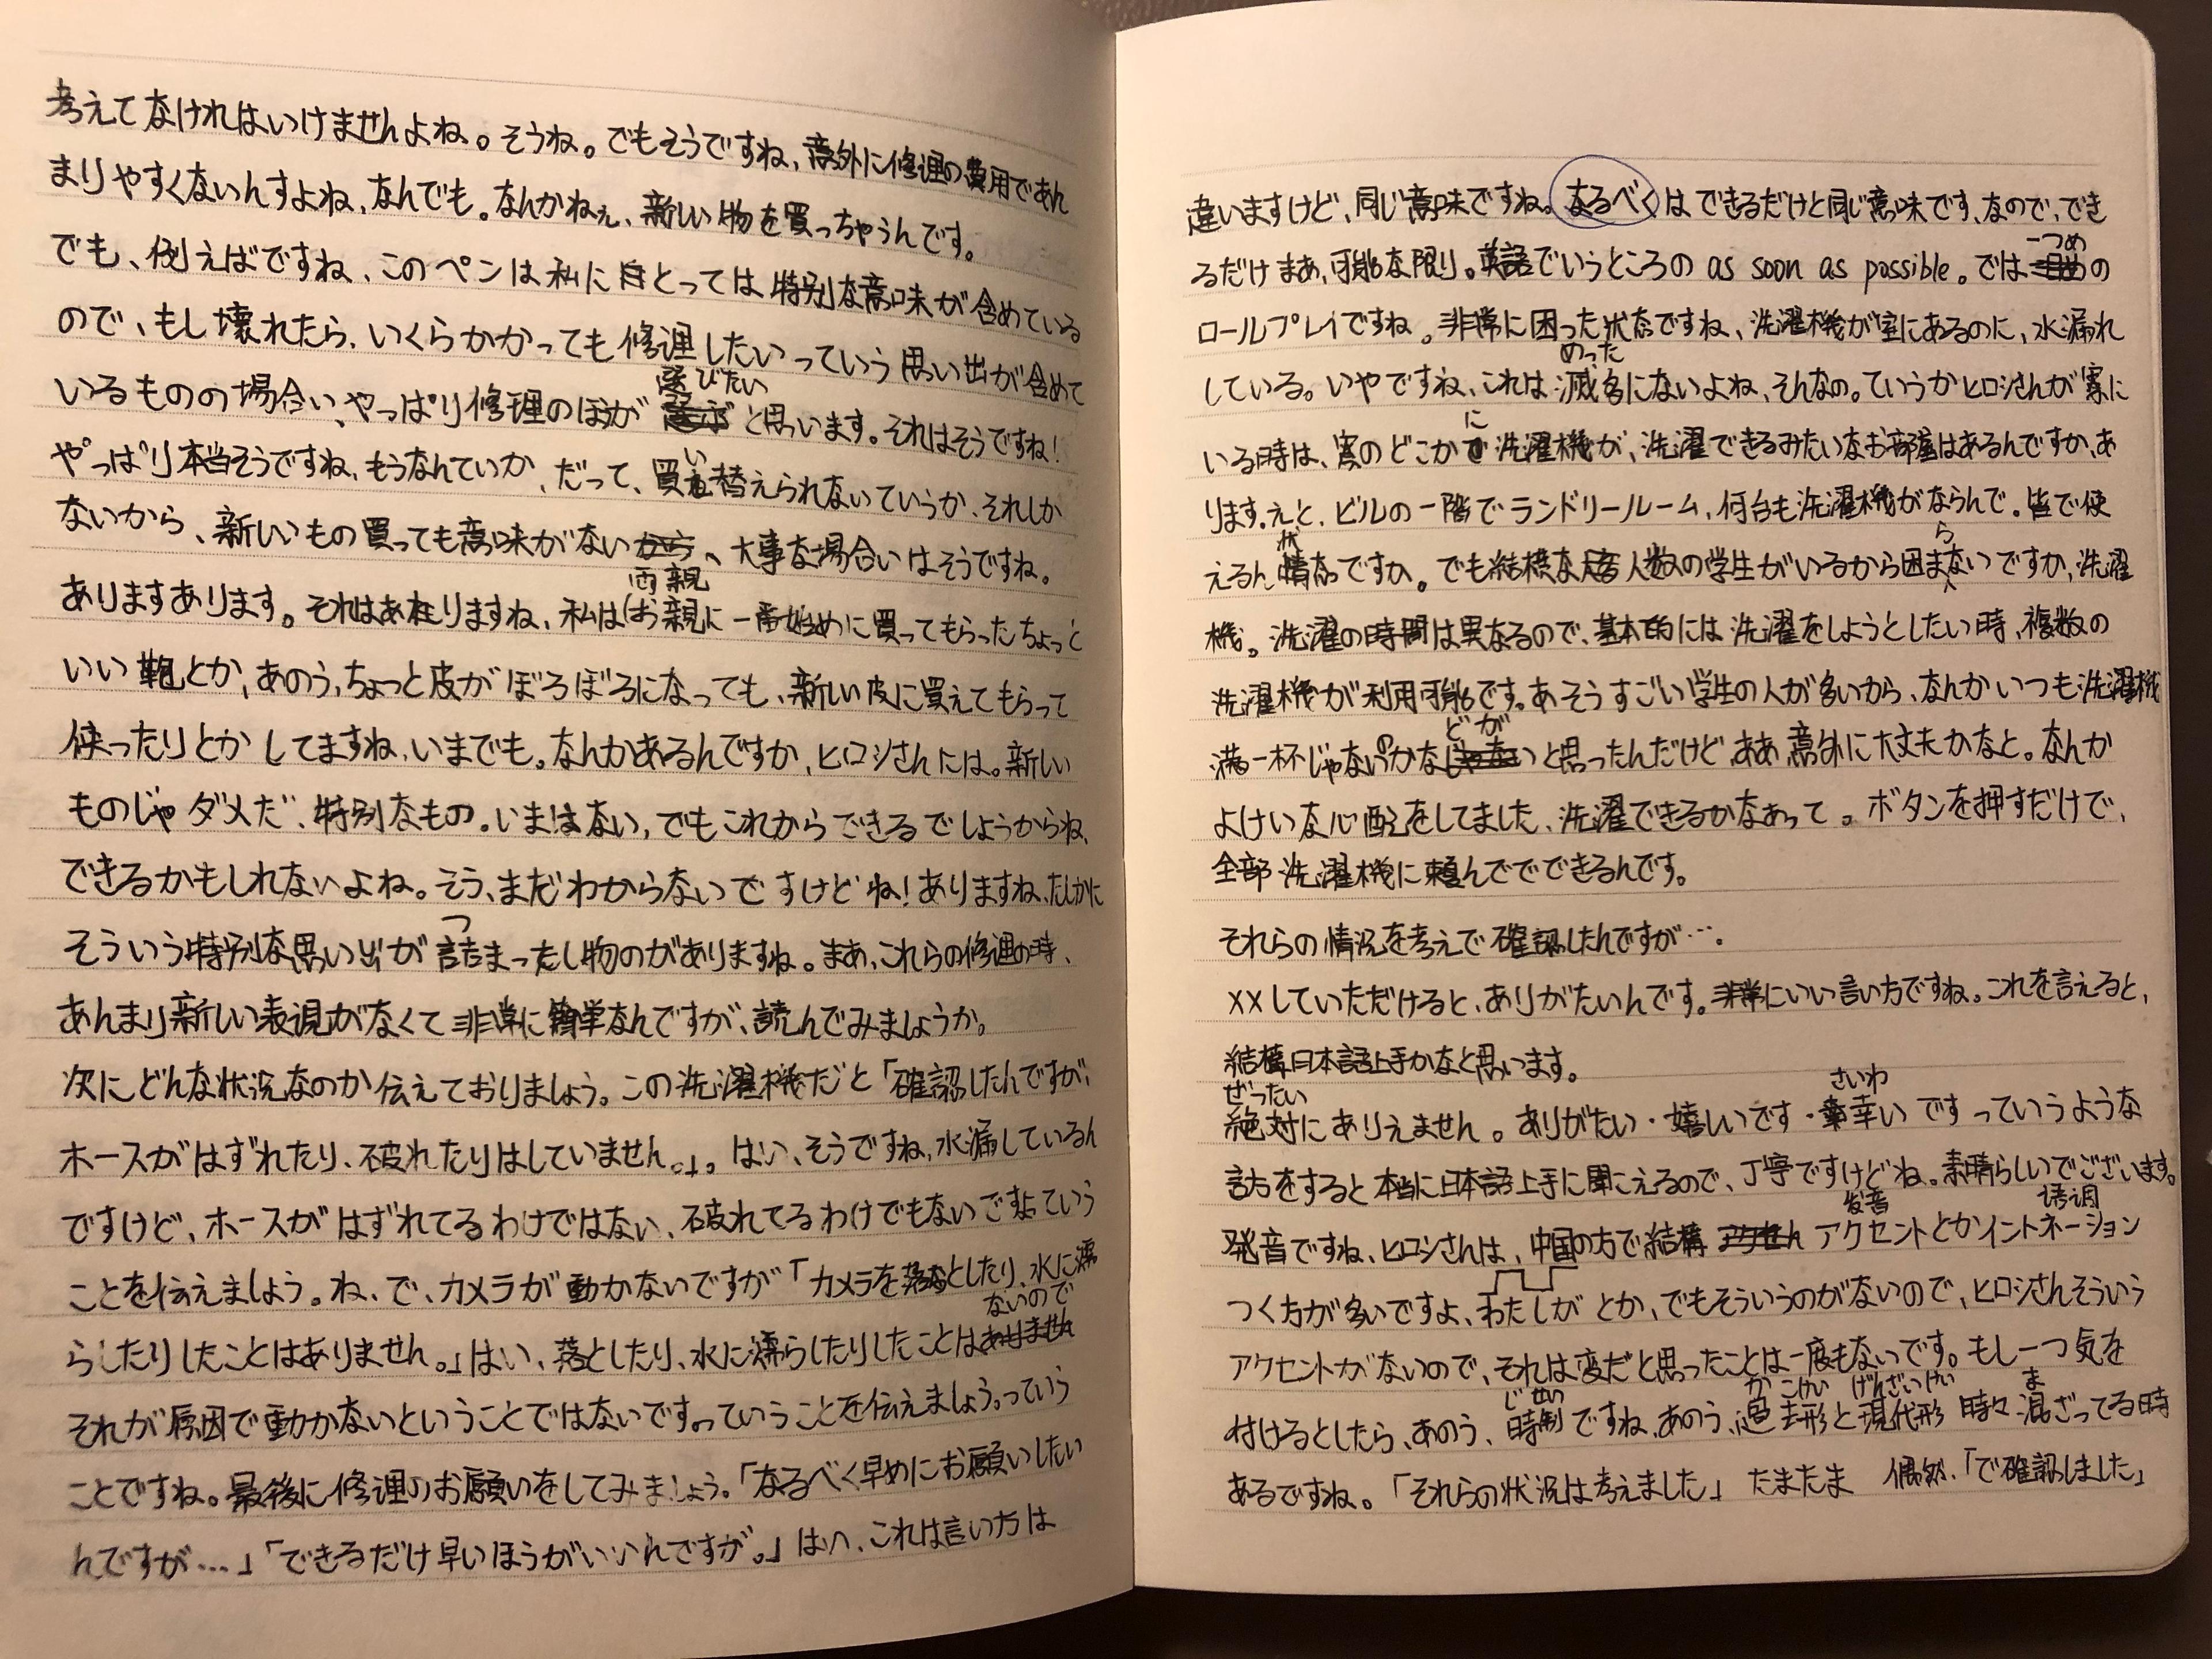 考えてなければいけませんよね。そうね。でもそうですね、意外に修理の費用であん
まりやすくないんすよね、なんでも。なんかねぇ、新しい物を買っちゃうんです。
でも、例えばですね、このペンは私にとっては特別な意味が含めている
ので、もし壊れたら、いくらかかっても修理したいっていう思い出が含めて
選びたい
いるものの場合い、やっぱり修理のほうが と思います。それはそうですね!
やっぱり本当そうですね、もうなんていか、だって、買い替えられないていうか、それしか
ないから、新しいもの買っても意味がないから、大事な場合いはそうですね。
両親
ありますあります。それはありますね、私は(お親に一番始めに買ってもらったちょっと
いい鞄とか、あのう、ちょっと皮がぼろぼろになっても、新しい皮に買えてもらって
使ったりとかしてますね、いまでも。なんかあるんですか、ヒロシさんには。新しい
ものじゃダメだ、特別なもの。いまはない、でもこれからできるでしょうからね、
できるかもしれないよね。そう、まだわからないですけどね!ありますね、たしかに
つ
そういう特別な思い出が詰まったし物のがありますね。まあ、これらの修理の時、
あんまり新しい表現がなくて非常に簡単なんですが、読んでみましょうか。
次にどんな状況なのか伝えておりましょう。この洗濯機だと「確認したんですが、
ホースがはずれたり、破れたりはしていません。」。はい、そうですね、水漏しているん
ですけど、ホースがはずれてるわけではない、破れてるわけでもないですよっていう
ことを伝えましょう。ね、で、カメラが動かないですが「カメラを落としたり、水に濡
ないので
らしたりしたことはありません。」はい、落としたり、水に濡らしたりしたことはありません
それが原因で動かないということではないですっていうことを伝えましょうっていう
ことですね。最後に修理のお願いをしてみましょう。「なるべく早めにお願いしたい
んですが…」「できるだけ早いほうがいいんですが。」はい、これは言い方は
違いますけど、同じ意味ですね。なるべくはできるだけと同じ意味です、なので、でき
一つめ
るだけまあ、可能な限り。英語でいうところの as soon as possible。ではの
ロールプレイですね。非常に困った状態ですね、洗濯機が室にあるのに、水漏れ
めった
している。いやですね、これは滅多にないよね、そんなの。ていうかヒロシさんが家に
に
いる時は、家のどこか洗濯機が、洗濯できるみたいなお部屋はあるんですか、あ
ります。えと、ビルの一階でランドリールーム、何台も洗濯機がならんで。皆で使
状 ら
えるん情態ですか。でも結構な人数の学生がいるから困まないですか、洗濯
機。洗濯の時間は異なるので、基本的には洗濯をしようとしたい時、複数の
洗濯機が利用可能です。あそうすごい学生の人が多いから、なんかいつも洗濯機
の どが
満一杯じゃないかなじゃないと思ったんだけど、ああ意外に大丈夫かなと。なんか
よけいな心配をしてました、洗濯できるかなあって。ボタンを押すだけで、
全部洗濯機に頼んでできるんです。
それらの情況を考えで確認したんですが…。
××していただけると、ありがたいんです。非常にいい言い方ですね。これを言えると、
結構日本語上手かなと思います。
ぜったい さいわ
絶対にありえません。ありがたい・嬉しいです・幸いですっていうような
言方をすると本当に日本語上手に聞こえるので、丁寧ですけどね。素晴らしいでございます。
发音 语调
発音ですね、ヒロシさんは、中国の方で結構 アクセントとかイントネーション
つく方が多いですよ、わたしがとか、でもそういうのがないので、ヒロシさんそういう
アクセントがないので、それは変だと思ったことは一度もないです。もし一つ気を
じせい かこけい げんざいけい ま
付けるとしたら、あのう、時制ですね、あのう、過去形と現代形時々混ざってる時
あるですね。「それらの状況は考えました」たまたま 偶然、「で確認しました」